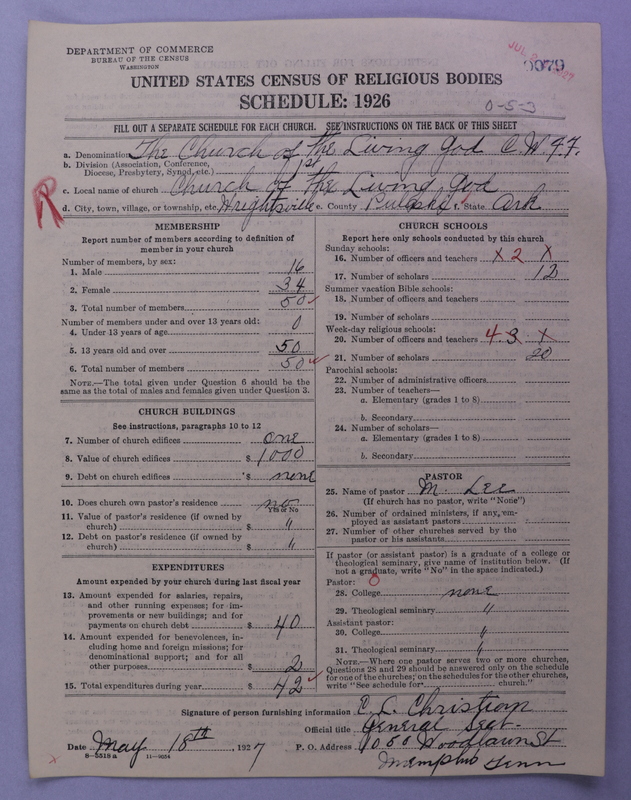 DEPARTMENT OF COMMERCE
BUREAU OF THE CENSUS
WASHINGTON
0079
UNITED STATES CENSUS OF RELIGIOUS BODIES
SCHEDULE: 1926
0-5-3
FILL OUT A SEPARATE SCHEDULE FOR EACH CHURCH. SEE INSTRUCTIONS ON THE BACK OF THIS SHEET
a. Denomination The Church of the Living God C.W.F.F.
b. Division (Association, Conference, Diocese, Presbytery, Synod, etc.) 1st
c. Local name of church Church of the Living God
R
d. City, town, village, or township, etc. Wrightsville e. County Pulaski f. State Ark
MEMBERSHIP
Report number of members according to definition of
member in your church
Number of members, by sex:
1. Male 16
2. Female 34
3. Total number of members 50
Number of members under and over 13 years old:
4. Under 13 years of age 0
5. 13 years old and over 50
6. Total number of members 50
NOTE.—The total given under Question 6 should be the
same as the total of males and females given under Question 3.
CHURCH BUILDINGS
See instructions, paragraphs 10 to 12
7. Number of church edifices one
8. Value of church edifices $ 1000
9. Debt on church edifices $ none
10. Does church own pastor's residence no
Yes or No
11. Value of pastor's residence (if owned by
church) $ "
12. Debt on pastor's residence (if owned by
church) $ "
EXPENDITURES
Amount expended by your church during last fiscal year
13. Amount expended for salaries, repairs,
and other running expenses; for im-
provements or new buildings; and for
payments on church debt $ 40
14. Amount expended for benevolences, in-
cluding home and foreign missions; for
denominational support; and for all
other purposes $ 2
15. Total expenditures during year $ 42
CHURCH SCHOOLS
Report here only schools conducted by this church
Sunday schools:
16. Number of officers and teachers X 2 X
17. Number of scholars 12
Summer vacation Bible schools:
18. Number of officers and teachers
19. Number of scholars
Week-day religious schools:
20. Number of officers and teachers 4 3 X
21. Number of scholars 20
Parochial schools:
22. Number of administrative officers
23. Number of teachers—
a. Elementary (grades 1 to 8)
b. Secondary
24. Number of scholars—
a. Elementary (grades 1 to 8)
b. Secondary
PASTOR
25. Name of pastor M. Lee
(If church has no pastor, write "None")
26. Number of ordained ministers, if any, em-
ployed as assistant pastors
27. Number of other churches served by the
pastor or his assistants
If pastor (or assistant pastor) is a graduate of a college or
theological seminary, give name of institution below. (If
not a graduate, write "No" in the space indicated.)
Pastor:
28. College none
29. Theological seminary "
Assistant pastor:
30. College "
31. Theological seminary "
NOTE.—Where one pastor serves two or more churches,
Questions 28 and 29 should be answered only on the schedule
for one of the churches; on the schedules for the other churches,
write "See schedule for church."
Signature of person furnishing information E. C. Christion
Official title General Sect.
Date May 18th, 1927 P. O. Address 1050 Woodlawn St
8—5518a 11—9054
Memphis Tenn